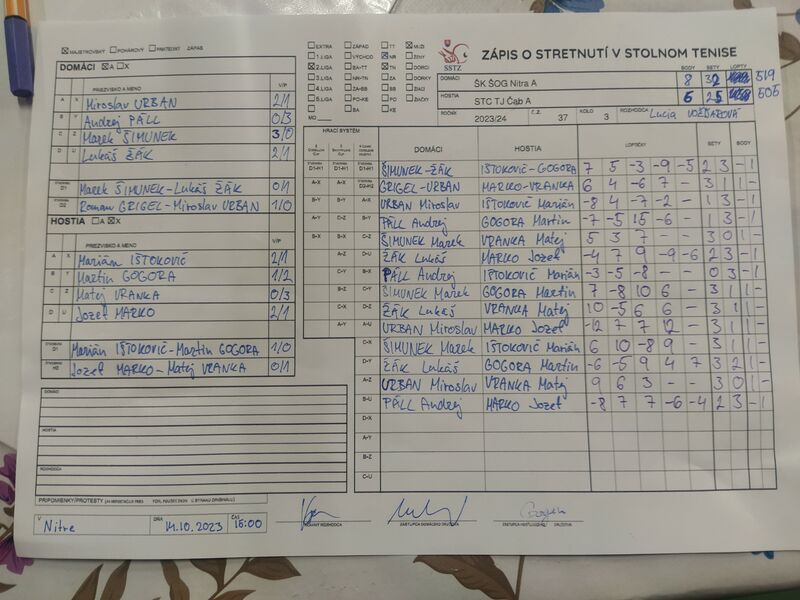 MAJSTROVSKÝ POHÁROVÝ PRIATEĽSKÝ ZÁPAS
DOMÁCI A X
PRIEZVISKO A MENO V/P
A X Miroslav URBAN 2/1
B Y Andrej PÁLL 0/3
C Z Marek ŠIMUNEK 3/0
D U Lukáš ŽÁK 2/1
D1 Marek ŠIMUNEK-Lukáš ŽÁK 0/1
D2 Roman GRIGEL-Miroslav URBAN 1/0
HOSTIA A X
PRIEZVISKO A MENO V/P
A X Marián IŠTOKOVIČ 2/1
B Y Martin GOGORA 1/2
C Z Matej VRANKA 0/3
D U Jozef MARKO 2/1
Marián IŠTOKOVIČ-Martin GOGORA 1/0
H2 Jozef MARKO-Matej VRANKA 0/1
DOMÁCI
HOSTIA
ROZHODCA
PRIPOMIENKY/PROTESTY
V Nitre DŇA 14.10.2023 ČAS 15:00
EXTRA ZÁPAD TT MUŽI
1.LIGA VÝCHOD NR ŽENY
2.LIGA BA-TT TN DORCI
3.LIGA NR-TN ZA DORKY
4.LIGA ZA-BB BB ŽIACI
5.LIGA PO-KE PO ŽIAČKY
BA KE
MO
SSTZ
ZÁPIS O STRETNUTÍ V STOLNOM TENISE
BODY SETY LOPTY
DOMÁCI ŠK ŠOG Nitra A 8 32 519
HOSTIA STC TJ Čab A 6 25 505
ROČNÍK 2023/24 Č.Z. 37 KOLO 3 ROZHODCA Lucia
HRACÍ SYSTÉM DOMÁCI HOSTIA LOPTIČKY SETY BODY
D1-H1 D1-H1 ŠIMUNEK-ŽÁK IŠTOKOVIČ-GOGORA 7 5 -3 -9 -5 2 3 - 1
A-X A-X D2-H2 GRIGEL-URBAN MARKO-VRANKA 6 4 -6 7 - 3 1 1 -
B-Y B-Y A-X URBAN Miroslav IŠTOKOVIČ Marián -8 4 -7 -2 - 1 3 - 1
A-Y C-Z B-Y PÁLL Andrej GOGORA Martin -7 -5 15 -6 - 1 3 - 1
B-X B-X C-Z ŠIMUNEK Marek VRANKA Matej 5 3 7 - - 3 0 1 -
A-Z D-U ŽÁK Lukáš MARKO Jozef -4 7 9 -9 -6 2 3 - 1
C-Y B-X PÁLL Andrej IŠTOKOVIČ Marián -3 -5 -8 - - 0 3 - 1
B-Z C-Y ŠIMUNEK Marek GOGORA Martin 7 -8 10 6 - 3 1 1 -
C-X D-Z ŽÁK Lukáš VRANKA Matej 10 -5 6 6 - 3 1 1 -
A-Y A-U URBAN Miroslav MARKO Jozef -12 7 7 12 - 3 1 1 -
C-X ŠIMUNEK Marek IŠTOKOVIČ Marián 6 10 -8 9 - 3 1 1 -
D-Y ŽÁK Lukáš GOGORA Martin -6 -5 9 4 7 3 2 1 -
A-Z URBAN Miroslav VRANKA Matej 9 6 3 - - 3 0 1 -
B-U PÁLL Andrej MARKO Jozef -8 7 7 -6 -4 2 3 - 1
D-X
A-Y
B-Z
C-U
HLAVNÝ ROZHODCA ZÁSTUPCA DOMÁCEHO DRUŽSTVA ZÁSTUPCA HOSŤUJÚCEHO DRUŽSTVA